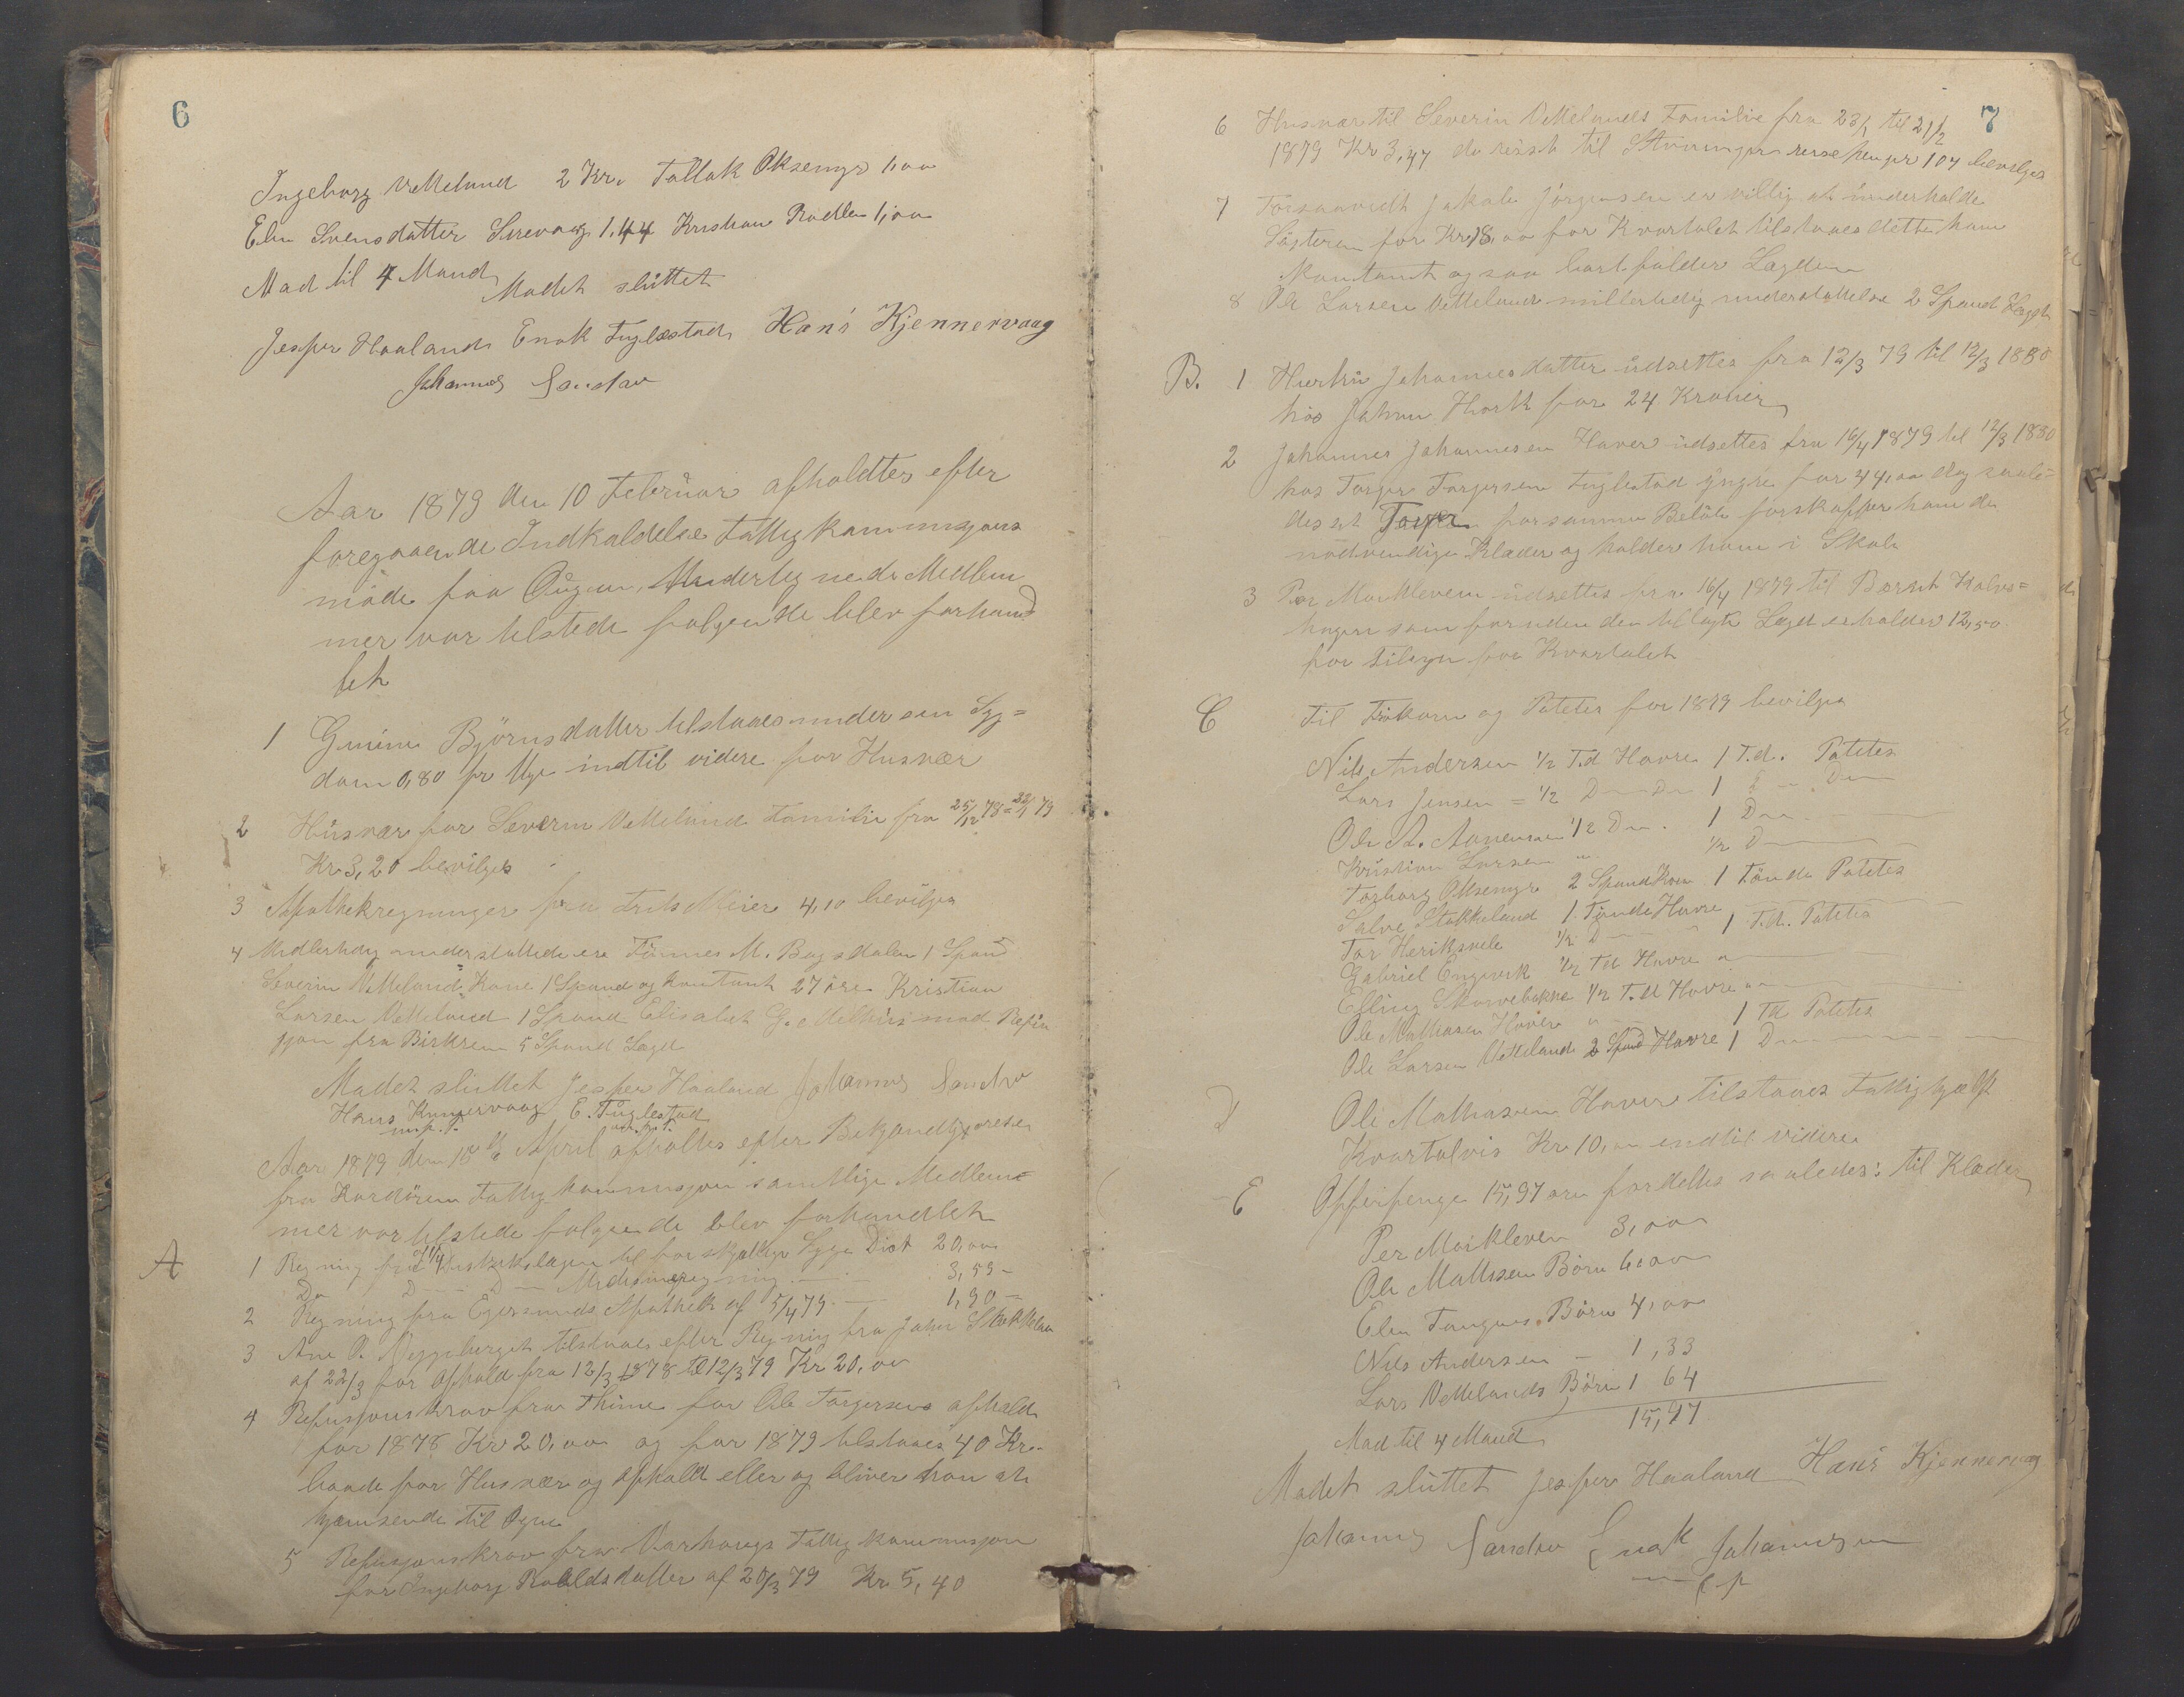 6
Ingeborg Vetteland 2 Kr. Tallak Oksemyr 1,00
Elen Svensdatter Sirevaag 1,44 Kristian Rodlen 1,00
Mad til 4 Mand
Mødet sluttet
Jesper Haaland Enok Fuglestad Hans Kjennervaag
Johannes Sandsø
Aar 1879 den 10 Februar afholdtes efter
foregaaende Indkaldelse Fattigkommisjons
møde paa Ougne, Underteg nede Medlem
mer var tilstede følgende blev forhand
let
1 Gunine Bjørnsdatter tilstaaes under sin Syg=
dom 0,80 pr Uge indtil videre for Husvær
2 Husvær for Severin Vetteland Familie fra 25/12 78 = 22/1 79
Kr 3,20 bevilges
3 Apothekregninger fra Frits Meier 4,10 bevilges
4 Midlertidig understøttede ere Tønnes M. Bagsdalen 1 Spand
Severin Vettelands Kone 1 Spand og Kontant 27 øre Kristian
Larsen Vetteland 1 Spand Elisabet mod Refu
sjon fra Birkrem 5 Spand Lægd
Mødet sluttet Jesper Haaland Johannes Sandsø
Hans Kjennervaag E. Fuglestad
m.p.t.
Aar 1879 den 15de April afholtes efter Bekjendtgjørelse
fra Kordøren Fattigkommisjon samtlige Medlem=
mer var tilstede følgende blev forhandlet
A
1 Regning fra Distriktslægen til forskjellige Syge Diæt 20,00
Do D D Medisinregning 3,59
2 Regning fra Egersunds Apothek af 5/4 79 1,90
3 Ane P. Nyggeberget tilstaaes efter Regning fra John Stokkelan
af 22/3 for Ophold fra 12/3 1878 til 12/3 79 Kr 20,00
4 Refusjonskrav fra Thime for Ole Torgersens ophold
for 1878 Kr 20,00 og for 1879 tilstaaes 40 Kr.
baade for Husvær og Ophold eller og bliver han at
hjemsende til Ogne
5 Refusjonskrav fra Varhougs Fattigkommisjon
for Ingeborg Roaldsdatter af 20/3 79 Kr 5,40
7
6 Husvær til Severin Vettelands Familie fra 23/1 til 21/2
1879 Kr 3,47 da reist til Stavanger reisepenger 1 07 bevilges
7 Forsaavidt Jakob Jørgensen er villig at underholde
Søsteren for Kr 18,00 for Kvartalet tilstaaes dette ham
Kontant og saa bortfalder Lægden
8 Ole Larsen Vetteland midlertidig understøttelse 2 Spand Lægd
B. 1 Johannesdatter udsettes fra 12/3 79 til 12/3 1880
hos Johan Hork for 24 Kroner
2 Johannes Johannesen Haver udsettes fra 16/4 1879 til 12/3 1880
hos Torger Torgersen Fuglestad yngre for 44,00 dog saale=
des at Torger for samme Beløb forskaffer ham de
nødvendige Klæder og holder ham i Skole
3 Per Morkleven udsettes fra 16/4 1879 til Berent Kalve=
hagen som foruden den tillagte Lægd erholder 12,50
for tilsyn for Kvartalet
C Til Frøkorn og Poteter for 1879 bevilges
Nils Andersen 1/2 T.d Havre 1 T.d. Potetes
Lars Jensen = 1/2 D Do 1 D Do
Ole A. Aanensen 1/2 Do. 1 Do
Kristian Larsen " 1/2 D
Torborg Oksemyr 2 Spand Korn 1 Tønde Potetes
Salve Stokkeland 1 Tønde Havre
Tor Heriksvele 1/2 D 1 T.d. Potetes
Gabriel Engevik 1/2 Td Havre "
Elling Skarvebakke 1/2 T.d Havre "
Ole Mathiasen Haver " 1 Td Potetes
Ole Larsen Vetteland 2 Spand Havre 1 D
D Ole Mathiasen Haver tilstaaes Fattighjælp
Kvartalvis Kr 10,00 indtil videre
E Offerpenge 15,97 øre fordeltes saaledes: til Klæder
Per Morkleven 3,00
Ole Mathisen Børn 6,00
Elen Tangens Børn 4,00
Nils Andersen – 1,33
Lars Vettelands Børn 1 64
15,97
Mad til 4 Mand
Mødet sluttet Jesper Haaland Hans Kjennervaag
Johannes Sandsø Enok Johannesen